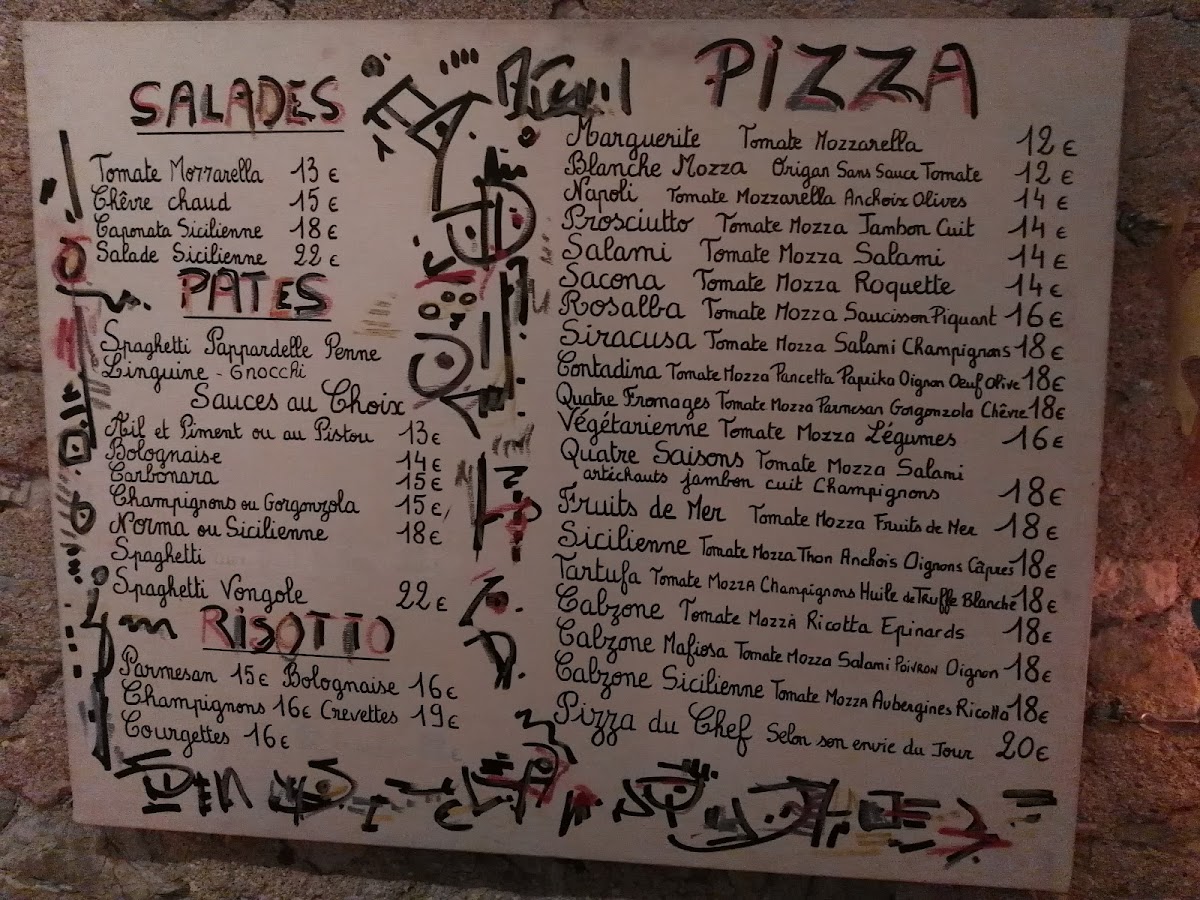 SALADES
Tomate Mozzarella 13 €
Chêvre chaud 15 €
Caponata Sicilienne 18 €
Salade Sicilienne 22 €
PATES
Spaghetti Pappardelle Penne
Linguine - Gnocchi
Sauces au Choix
Ail et Piment ou au Pistou 13 €
Bolognaise 14 €
Carbonara 15 €
Champignons ou Gorgonzola 15 €
Norma ou Sicilienne 18 €
Spaghetti
Spaghetti Vongole 22 €
RiSOTTO
Parmesan 15 € Bolognaise 16 €
Champignons 16 € Crevettes 19 €
Courgettes 16 €
PiZZA
Marguerite Tomate Mozzarella 12 €
Blanche Mozza Origan Sans Sauce Tomate 12 €
Napoli Tomate Mozzarella Anchoix Olives 14 €
Prosciutto Tomate Mozza Jambon Cuit 14 €
Salami Tomate Mozza Salami 14 €
Sacona Tomate Mozza Roquette 14 €
Rosalba Tomate Mozza Saucisson Piquant 16 €
Siracusa Tomate Mozza Salami Champignons 18 €
Contadina Tomate Mozza Pancetta Paprika Oignon Oeuf Olive 18 €
Quatre Fromages Tomate Mozza Parmesan Gorgonzola Chêvre 18 €
Végétarienne Tomate Mozza Légumes 16 €
Quatre Saisons Tomate Mozza Salami
artichauts jambon cuit Champignons 18 €
Fruits de Mer Tomate Mozza Fruits de Mer 18 €
Sicilienne Tomate Mozza Thon Anchois Oignons Câpres 18 €
Tartufa Tomate Mozza Champignons Huile de Truffe Blanche 18 €
Calzone Tomate Mozza Ricotta Epinards 18 €
Calzone Mafiosa Tomate Mozza Salami Poivron Oignon 18 €
Calzone Sicilienne Tomate Mozza Aubergines Ricotta 18 €
Pizza du Chef Selon son envie du Jour 20 €